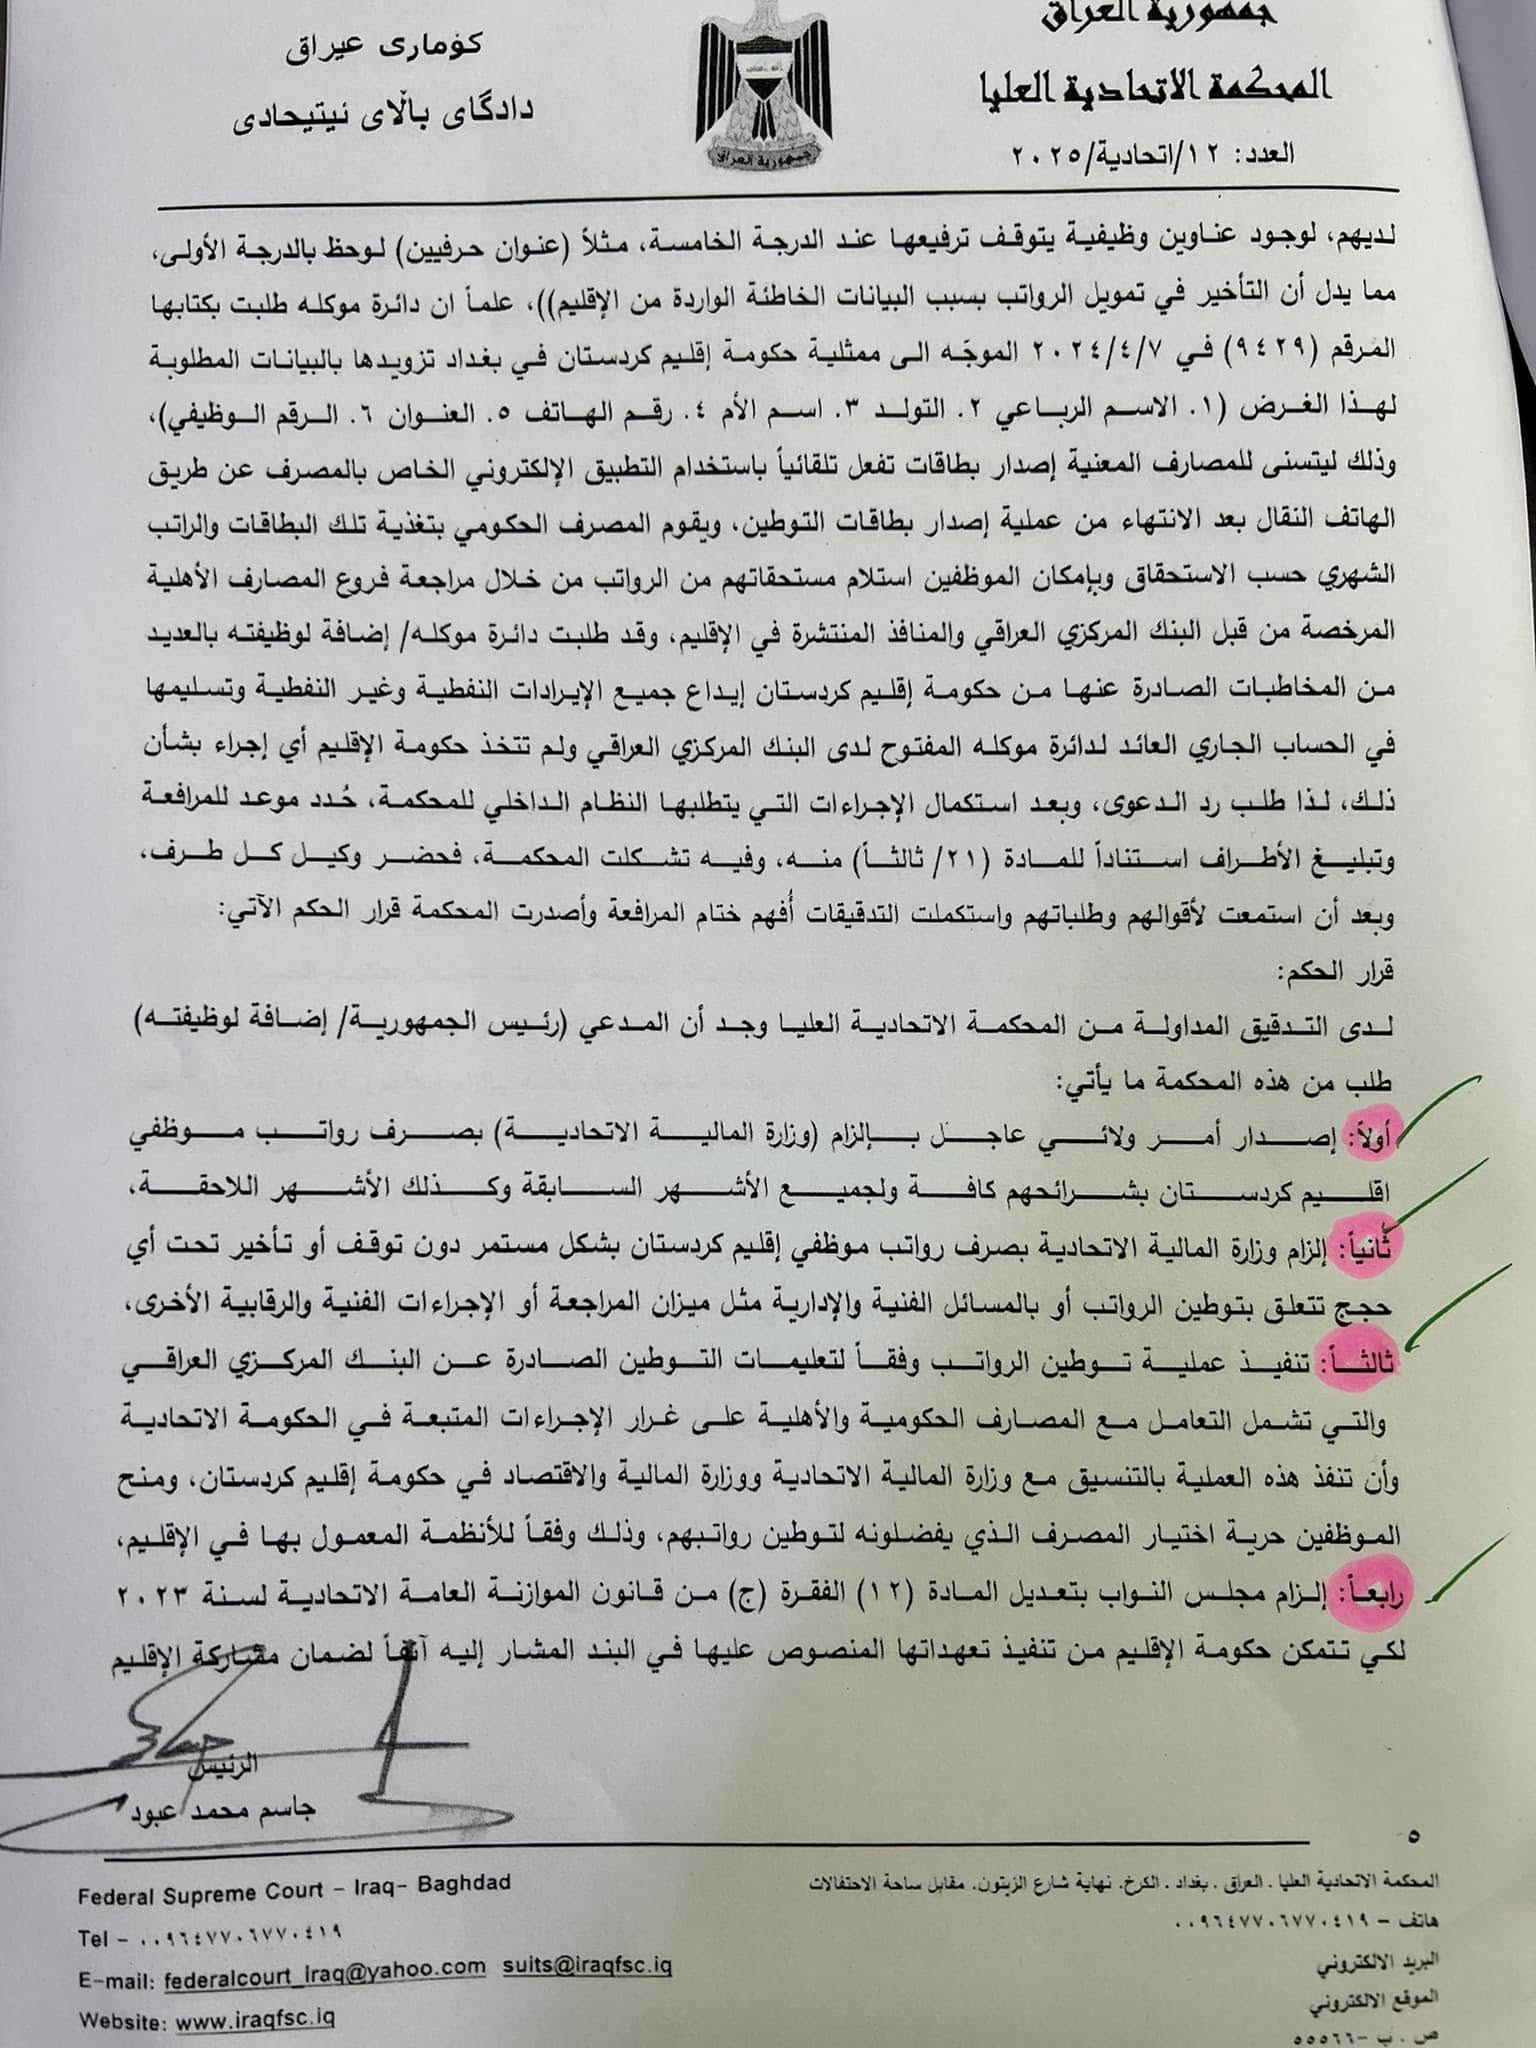 جمهورية العراق
المحكمة الاتحادية العليا
العدد: ١٢/اتحادية/٢٠٢٥
كۆماری عیراق
دادگای باڵای ئیتیحادی
جمهورية العراق
لديهم، لوجود عناوين وظيفية يتوقف ترفيعها عند الدرجة الخامسة، مثلاً (عنوان حرفيين) لوحظ بالدرجة الأولى،
مما يدل أن التأخير في تمويل الرواتب بسبب البيانات الخاطئة الواردة من الإقليم))، علماً ان دائرة موكله طلبت بكتابها
المرقم (٩٤٢٩) في ٢٠٢٤/٤/٧ الموجّه الى ممثلية حكومة إقليم كردستان في بغداد تزويدها بالبيانات المطلوبة
لهذا الغرض (١. الاسم الرباعي ٢. التولد ٣. اسم الأم ٤. رقم الهاتف ٥. العنوان ٦. الرقم الوظيفي)،
وذلك ليتسنى للمصارف المعنية إصدار بطاقات تفعل تلقائياً باستخدام التطبيق الإلكتروني الخاص بالمصرف عن طريق
الهاتف النقال بعد الانتهاء من عملية إصدار بطاقات التوطين، ويقوم المصرف الحكومي بتغذية تلك البطاقات والراتب
الشهري حسب الاستحقاق وبإمكان الموظفين استلام مستحقاتهم من الرواتب من خلال مراجعة فروع المصارف الأهلية
المرخصة من قبل البنك المركزي العراقي والمنافذ المنتشرة في الإقليم، وقد طلبت دائرة موكله/ إضافة لوظيفته بالعديد
من المخاطبات الصادرة عنها من حكومة إقليم كردستان إيداع جميع الإيرادات النفطية وغير النفطية وتسليمها
في الحساب الجاري العائد لدائرة موكله المفتوح لدى البنك المركزي العراقي ولم تتخذ حكومة الإقليم أي إجراء بشأن
ذلك، لذا طلب رد الدعوى، وبعد استكمال الإجراءات التي يتطلبها النظام الداخلي للمحكمة، حُدد موعد للمرافعة
وتبليغ الأطراف استناداً للمادة (٢١/ ثالثاً) منه، وفيه تشكلت المحكمة، فحضر وكيل كل طرف،
وبعد أن استمعت لأقوالهم وطلباتهم واستكملت التدقيقات أُفهم ختام المرافعة وأصدرت المحكمة قرار الحكم الآتي:
قرار الحكم:
لدى التدقيق المداولة من المحكمة الاتحادية العليا وجد أن المدعي (رئيس الجمهورية/ إضافة لوظيفته)
طلب من هذه المحكمة ما يأتي:
أولاً: إصدار أمر ولائي عاجل بإلزام (وزارة المالية الاتحادية) بصرف رواتب موظفي
اقليم كردستان بشرائحهم كافة ولجميع الأشهر السابقة وكذلك الأشهر اللاحقة،
ثانياً: إلزام وزارة المالية الاتحادية بصرف رواتب موظفي إقليم كردستان بشكل مستمر دون توقف أو تأخير تحت أي
حجج تتعلق بتوطين الرواتب أو بالمسائل الفنية والإدارية مثل ميزان المراجعة أو الإجراءات الفنية والرقابية الأخرى،
ثالثاً: تنفيذ عملية توطين الرواتب وفقاً لتعليمات التوطين الصادرة عن البنك المركزي العراقي
والتي تشمل التعامل مع المصارف الحكومية والأهلية على غرار الإجراءات المتبعة في الحكومة الاتحادية
وأن تنفذ هذه العملية بالتنسيق مع وزارة المالية الاتحادية ووزارة المالية والاقتصاد في حكومة إقليم كردستان، ومنح
الموظفين حرية اختيار المصرف الذي يفضلونه لتوطين رواتبهم، وذلك وفقاً للأنظمة المعمول بها في الإقليم،
رابعاً: إلزام مجلس النواب بتعديل المادة (١٢) الفقرة (ج) من قانون الموازنة العامة الاتحادية لسنة ٢٠٢٣
لكي تتمكن حكومة الإقليم من تنفيذ تعهداتها المنصوص عليها في البند المشار إليه آنفاً لضمان مشاركة الإقليم
الرئيس
جاسم محمد عبود
٥
المحكمة الاتحادية العليا . العراق . بغداد . الكرخ. نهاية شارع الزيتون. مقابل ساحة الاحتفالات
هاتف – ٠٠٩٦٤٧٧٠٦٧٧٠٤١٩
البريد الالكتروني
الموقع الالكتروني
ص . ب -٥٥٥٦٦
Federal Supreme Court – Iraq– Baghdad
Tel – ٠٠٩٦٤٧٧٠٦٧٧٠٤١٩
E-mail: federalcourt_iraq@yahoo.com suits@iraqfsc.iq
Website: www.iraqfsc.iq